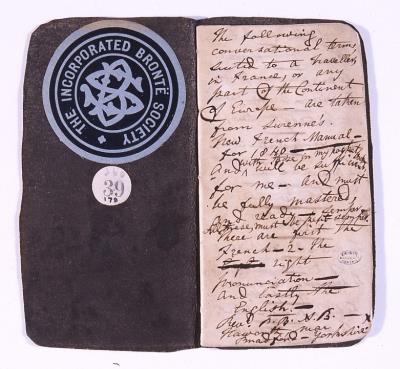 THE INCORPORATED BRONTË SOCIETY
39
179
The following
conversational terms,
suited to a traveller,
in France, or any
part of the Continent
of Europe — are taken
from Surennes.
New French Manual —
for 1840 —
with those in my pocket book
And will be sufficient
for me — and must
be fully mastered
And ready —
All these, must be kept
There are first the
French — 2 — the
right
Pronunciation —
And lastly the
English. —
Revd P. B. A.B. —
Haworth near
Bradford — Yorkshire